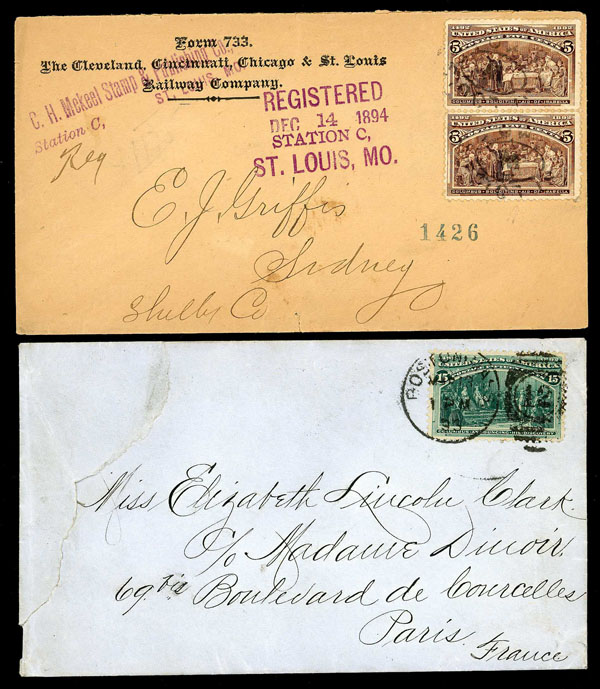 Form 733.
The Cleveland, Cincinnati, Chicago & St. Louis
Railway Company.
C. H. Mekeel Stamp & Publishing Co.,
ST. LOUIS, MO.
Station C,
Reg
REGISTERED
DEC 14 1894
STATION C,
ST. LOUIS, MO.
1492 1892
UNITED STATES OF AMERICA
5 POSTAGE FIVE CENTS 5
COLUMBUS SOLICITING AID OF ISABELLA
1492 1892
UNITED STATES OF AMERICA
5 POSTAGE FIVE CENTS 5
COLUMBUS SOLICITING AID OF ISABELLA
E. J. Griffis
1426
Sidney
Shelby Co
BOSTON
UNITED STATES OF AMERICA
15 15
COLUMBUS ANNOUNCING HIS DISCOVERY
Miss Elizabeth Lincoln Clark.
C/o Madame Dinoir.
69 bis Boulevard de Courcelles
Paris
France